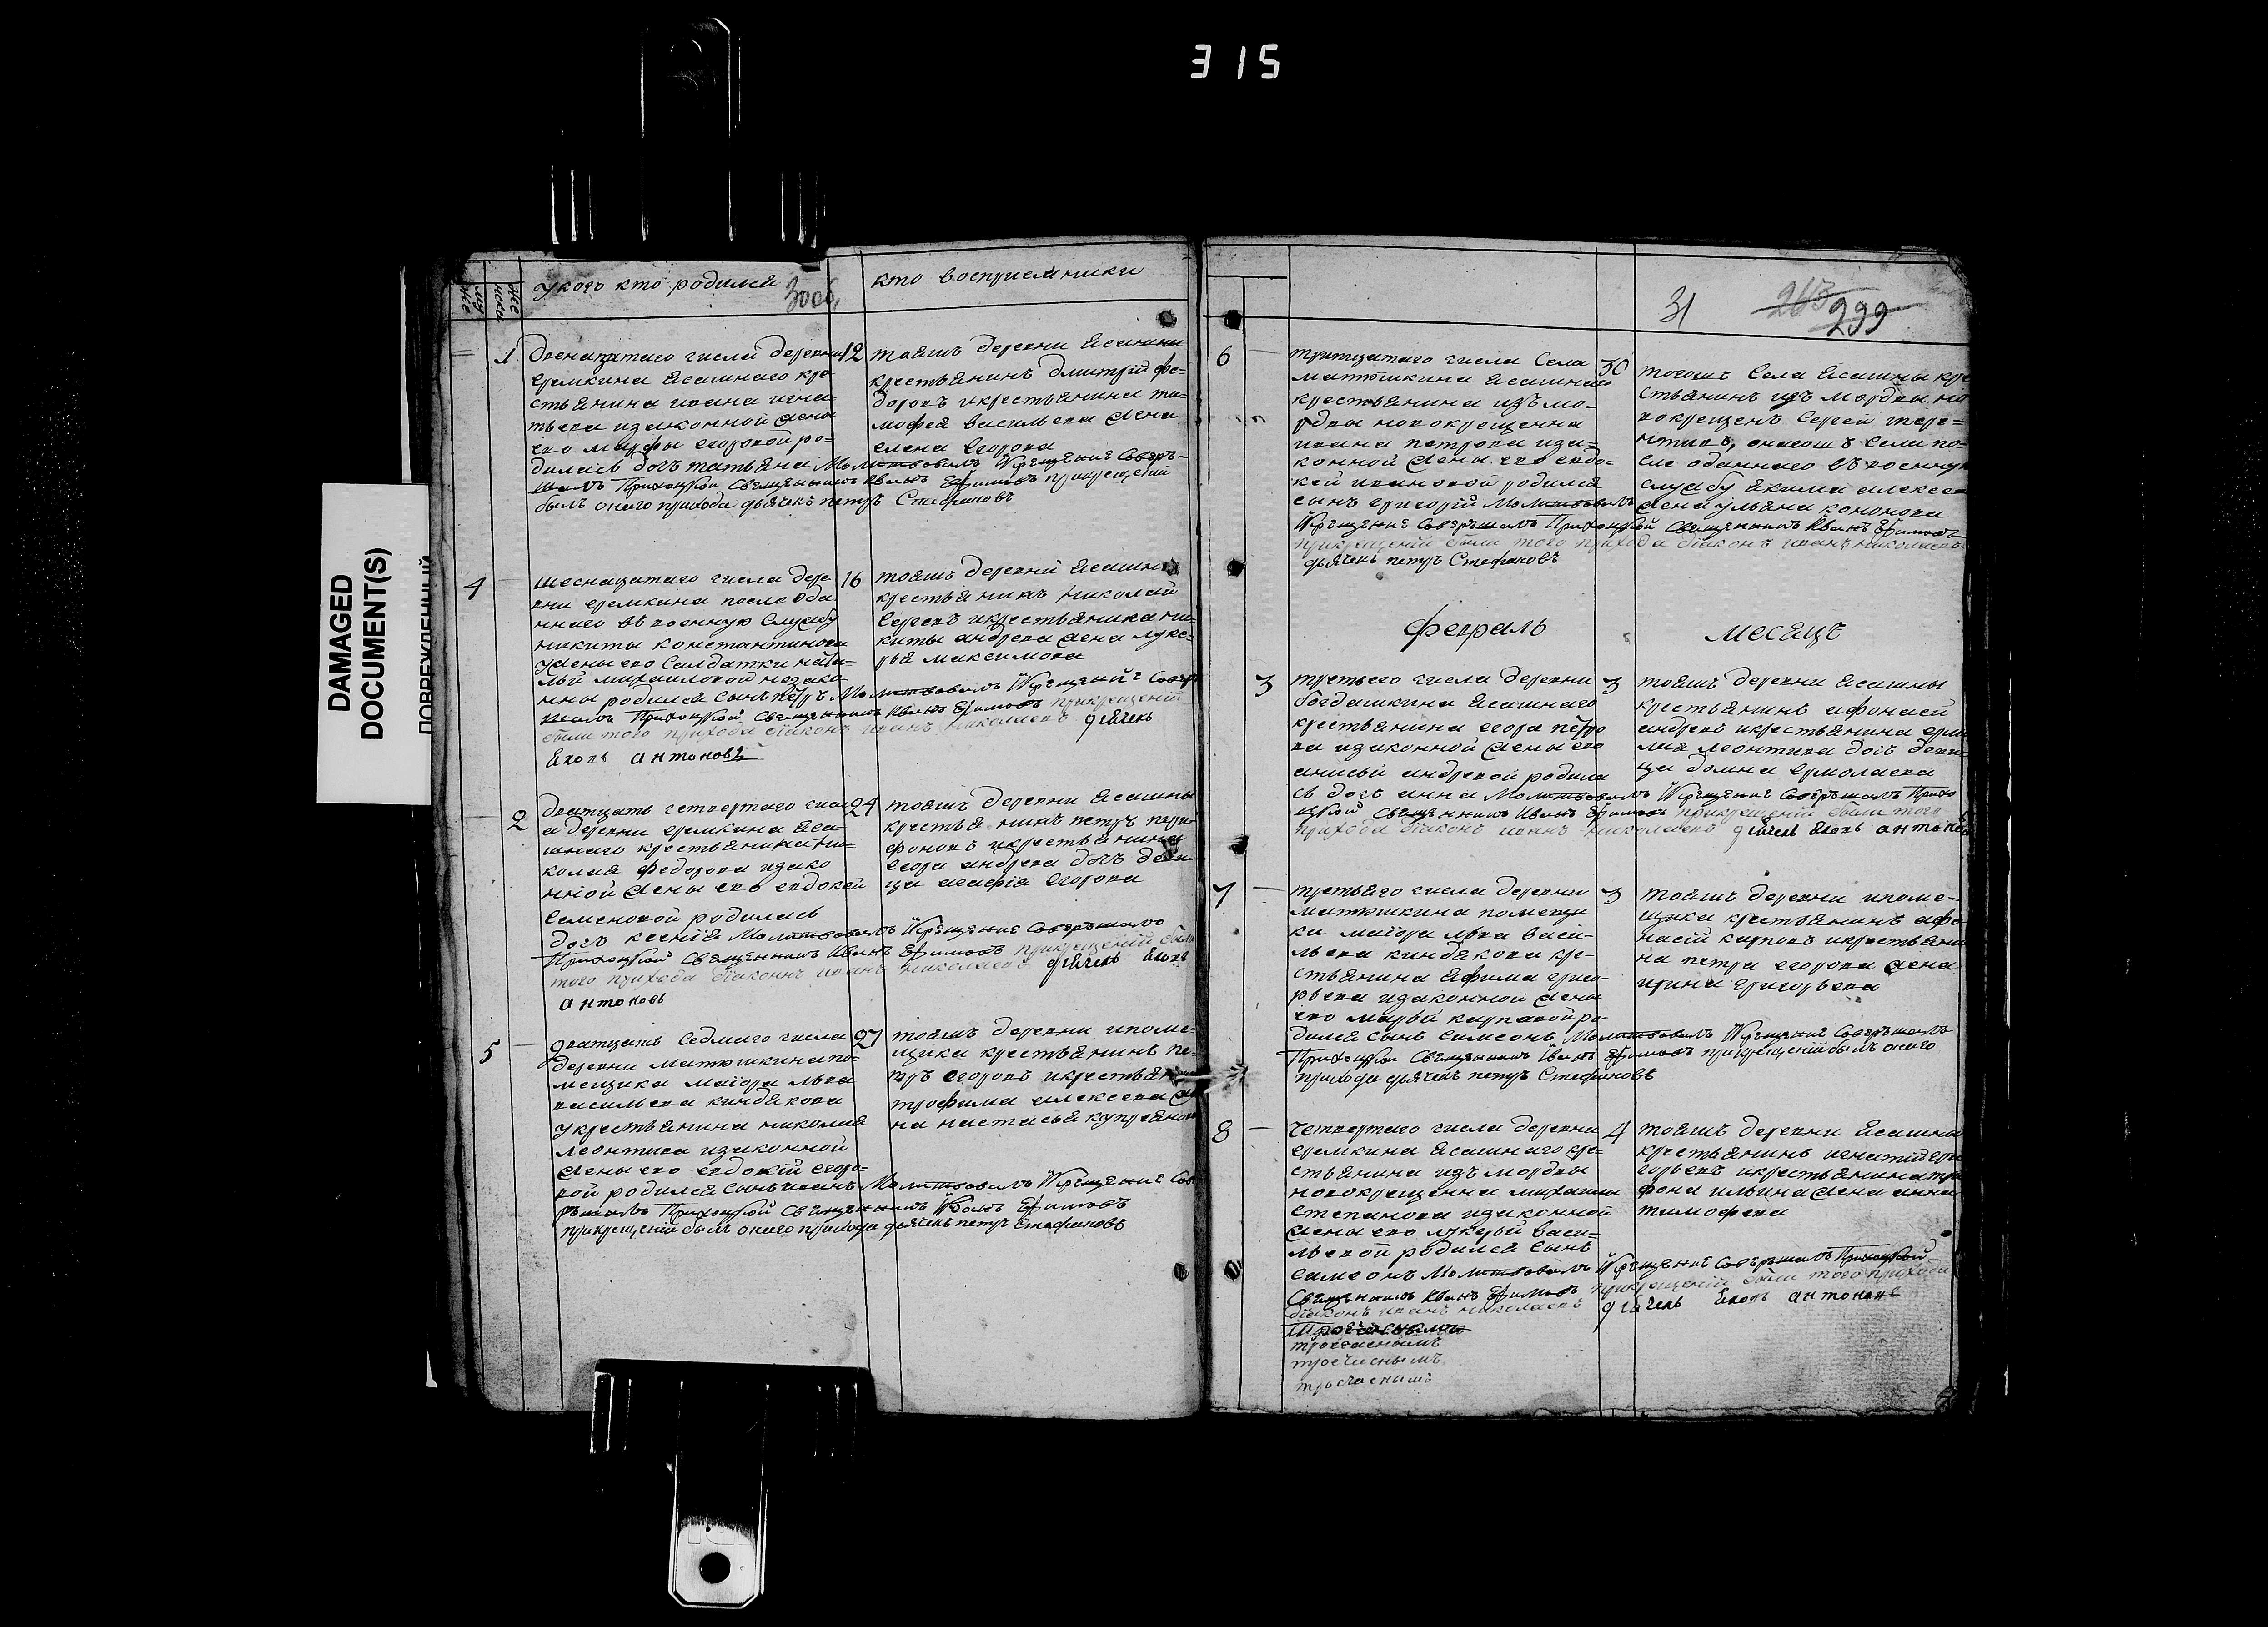 315
DAMAGED
DOCUMENT(S)
ПОВРЕЖДЕННЫЙ
У кого кто родился
30об.
кто восприемники
му
же
же
нска
1
Двенатцатаго числа деревни
еремкина ясашнаго кре-
стьянина ивана игна-
тьева изаконной жены
ево марфы егоровой ро-
дилась дочь татьяна Молитвовалъ Икрещение Совер-
шалъ Приходской Священникъ Иванъ Ефимовъ прикрещении
былъ оного прихода дьячекъ петръ Стефановъ
12
тояжъ деревни ясашны
крестьянинъ дмитрий фе-
доровъ икрестьянина ти-
мофея васильева жена
елена Егорова
4
шеснатцатаго числа дере
вни еремкина после отда-
ннаго въ военную Службу
никиты константинова
ужены ево Салдатки ната-
льи михаиловой незако-
нны родился сынъ петръ Молитвовалъ Икрещение Совер
шалъ Приходской Священникъ Иванъ Ефимовъ прикрещении
были того прихода дiаконъ иванъ николаевъ дячекъ
яковъ антоновъ
16
тояжъ деревни ясашны
крестьянинъ николай
Сергевъ икрестьянина ни-
киты андрева жена луке-
рья максимова
2
Дватцать четвертаго числ
а деревни еремкина яса-
шнаго крестьянина ни-
колая федорова изако
нной жены ево евдокеи
Семеновой родилась
дочь ксения Молитвовалъ Икрещение Совершалъ
Приходской Священникъ Иванъ Ефимовъ прикрещении были
того прихода дiаконъ иванъ николаевъ дячекъ яковъ
антоновъ
24
тояжъ деревни ясашны
крестьянинъ петръ пари-
фоновъ икрестьянина
егора андрева дочь деви-
ца агафiя Егорова
5
дватцать Седмаго числа
деревни матюшкина по-
мещика майора льва
васильева киндякова
укрестьянина николая
леонтиева изаконной
жены ево евдокiи егоро-
вой родился сынъ иванъ Молитвовалъ Икрещение Сове
ршалъ Приходской Священникъ Иванъ Ефимовъ
прикрещении былъ оного прихода дьячекъ петръ Стефановъ
27
тояжъ деревни ипоме-
щика крестьянинъ пе-
тръ егоровъ икрестьянина
трофима алексеева же
на настасья купреянова
31
263
299
6
тритцатаго числа Села
матюшкина ясашнаго
крестьянина изъ мо-
рдва новокрещенна
ивана петрова иза-
конной жены ево евдо-
кеи ивановой родился
сынъ григорiй Молитвовалъ
Икрещение Совершалъ Приходской Священникъ Иванъ Ефимовъ
прикрещении были того прихода дiаконъ иванъ николаевъ
дьячекъ петръ Стефановъ
30
тогожъ Села ясашны кре
стьянинъ изъ мордвы но
вокрещенъ Сергей тере-
нтиевъ, онагожъ Села по-
сле оданнаго въ военную
службу якима алексее
жена ульяна кононова
февраль
месяцъ
3
третьего числа деревни
богдашкина ясашнаго
крестьянина егора петро
ва изаконной жены ево
анисьи андревой родила
сь дочь анна Молитвовалъ Икрещение Совершалъ Прихо
дской Священникъ Иванъ Ефимовъ прикрещении были того
прихода дiаконъ иванъ николаевъ дячекъ яковъ антоновъ
3
тояжъ деревни ясашны
крестьянинъ афонасей
андревъ икрестьянина ермо
лая леонтиева дочь деви-
ца домна Ермолаева
7
третьяго числа деревни
матюшкина помещи
ка майора льва васи-
льева киндякова кре-
стьянина ефима григо-
рьева изаконной жены
ево марьи карповой ро-
дился сынъ симеонъ Молитвовалъ Икрещение Совершалъ
Приходской Священникъ Иванъ Ефимовъ прикрещении былъ оного
прихода дьячекъ петръ Стефановъ
3
тояжъ деревни ипоме-
щика крестьянинъ афо-
насiй карповъ икрестьяни
на петра егорова жена
ирина григорьева
8
Четвертаго числа деревни
еремкина ясашнаго кре-
стьянина изъ мордвы
новокрещенна михаила
степанова изаконной
жены ево лукерьи васи-
льевой родился сынъ
симеонъ Молитвовалъ Икрещение Совершалъ Приходской
Священникъ Иванъ Ефимовъ прикрещении были того прихода
дiаконъ иванъ николаевъ дячекъ яковъ антоновъ
4
тояжъ деревни ясашны
крестьянинъ игнатий гри
горьевъ икрестьянина три
фона ильина жена анна
тимофеева